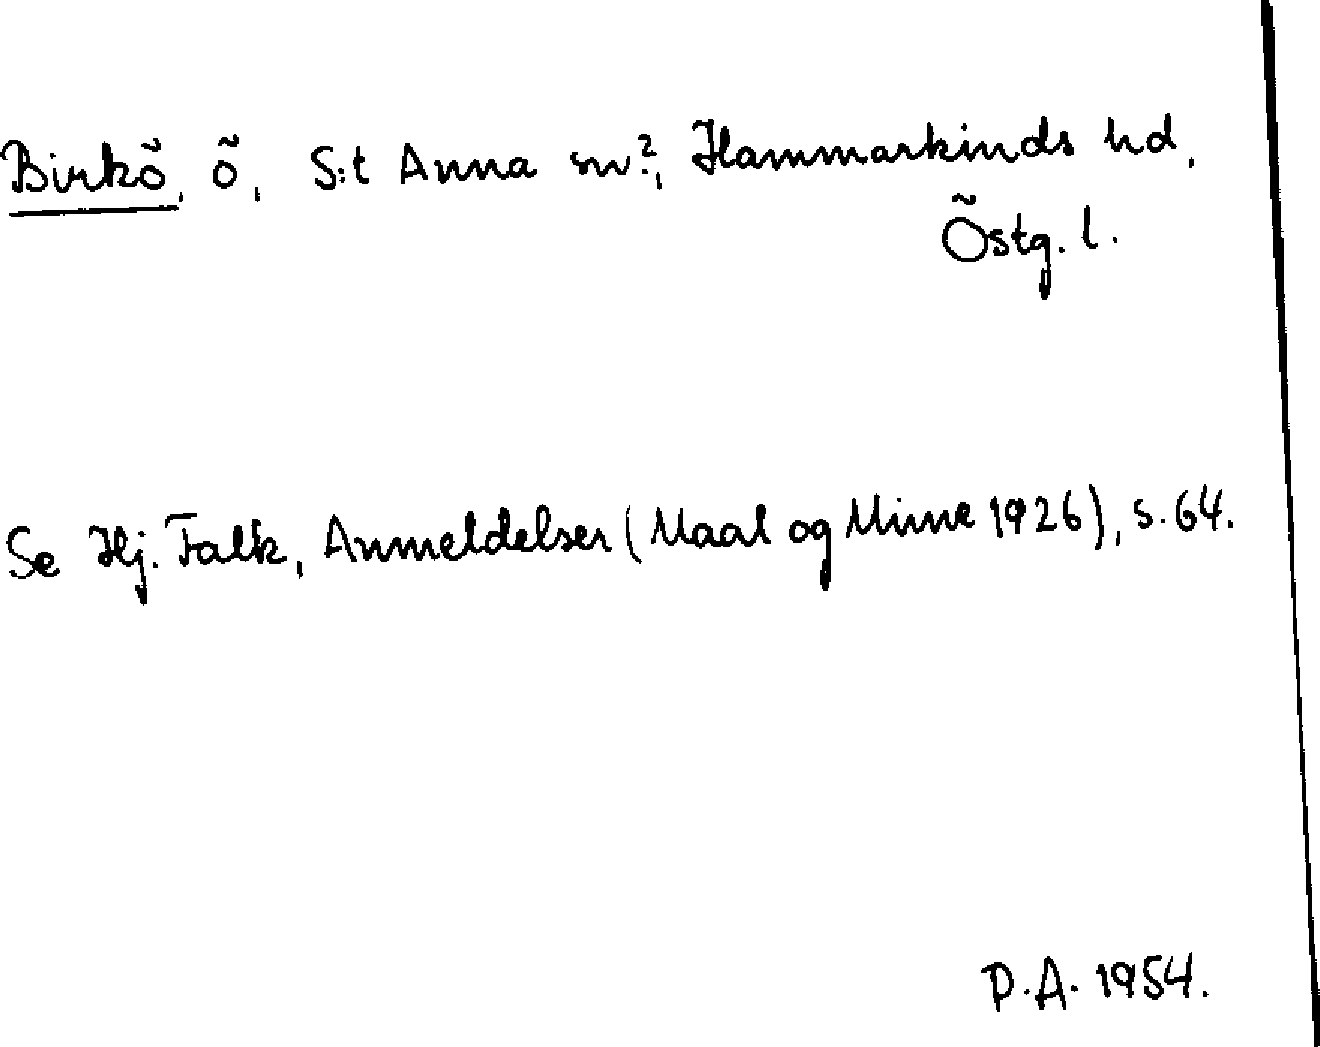 Birkö, ö, S:t Anna sn?, Hammarkinds hd,
Östg. l.
Se Hj. Falk, Anmeldelser (Maal og Minne 1926), s. 64.
P.A. 1954.